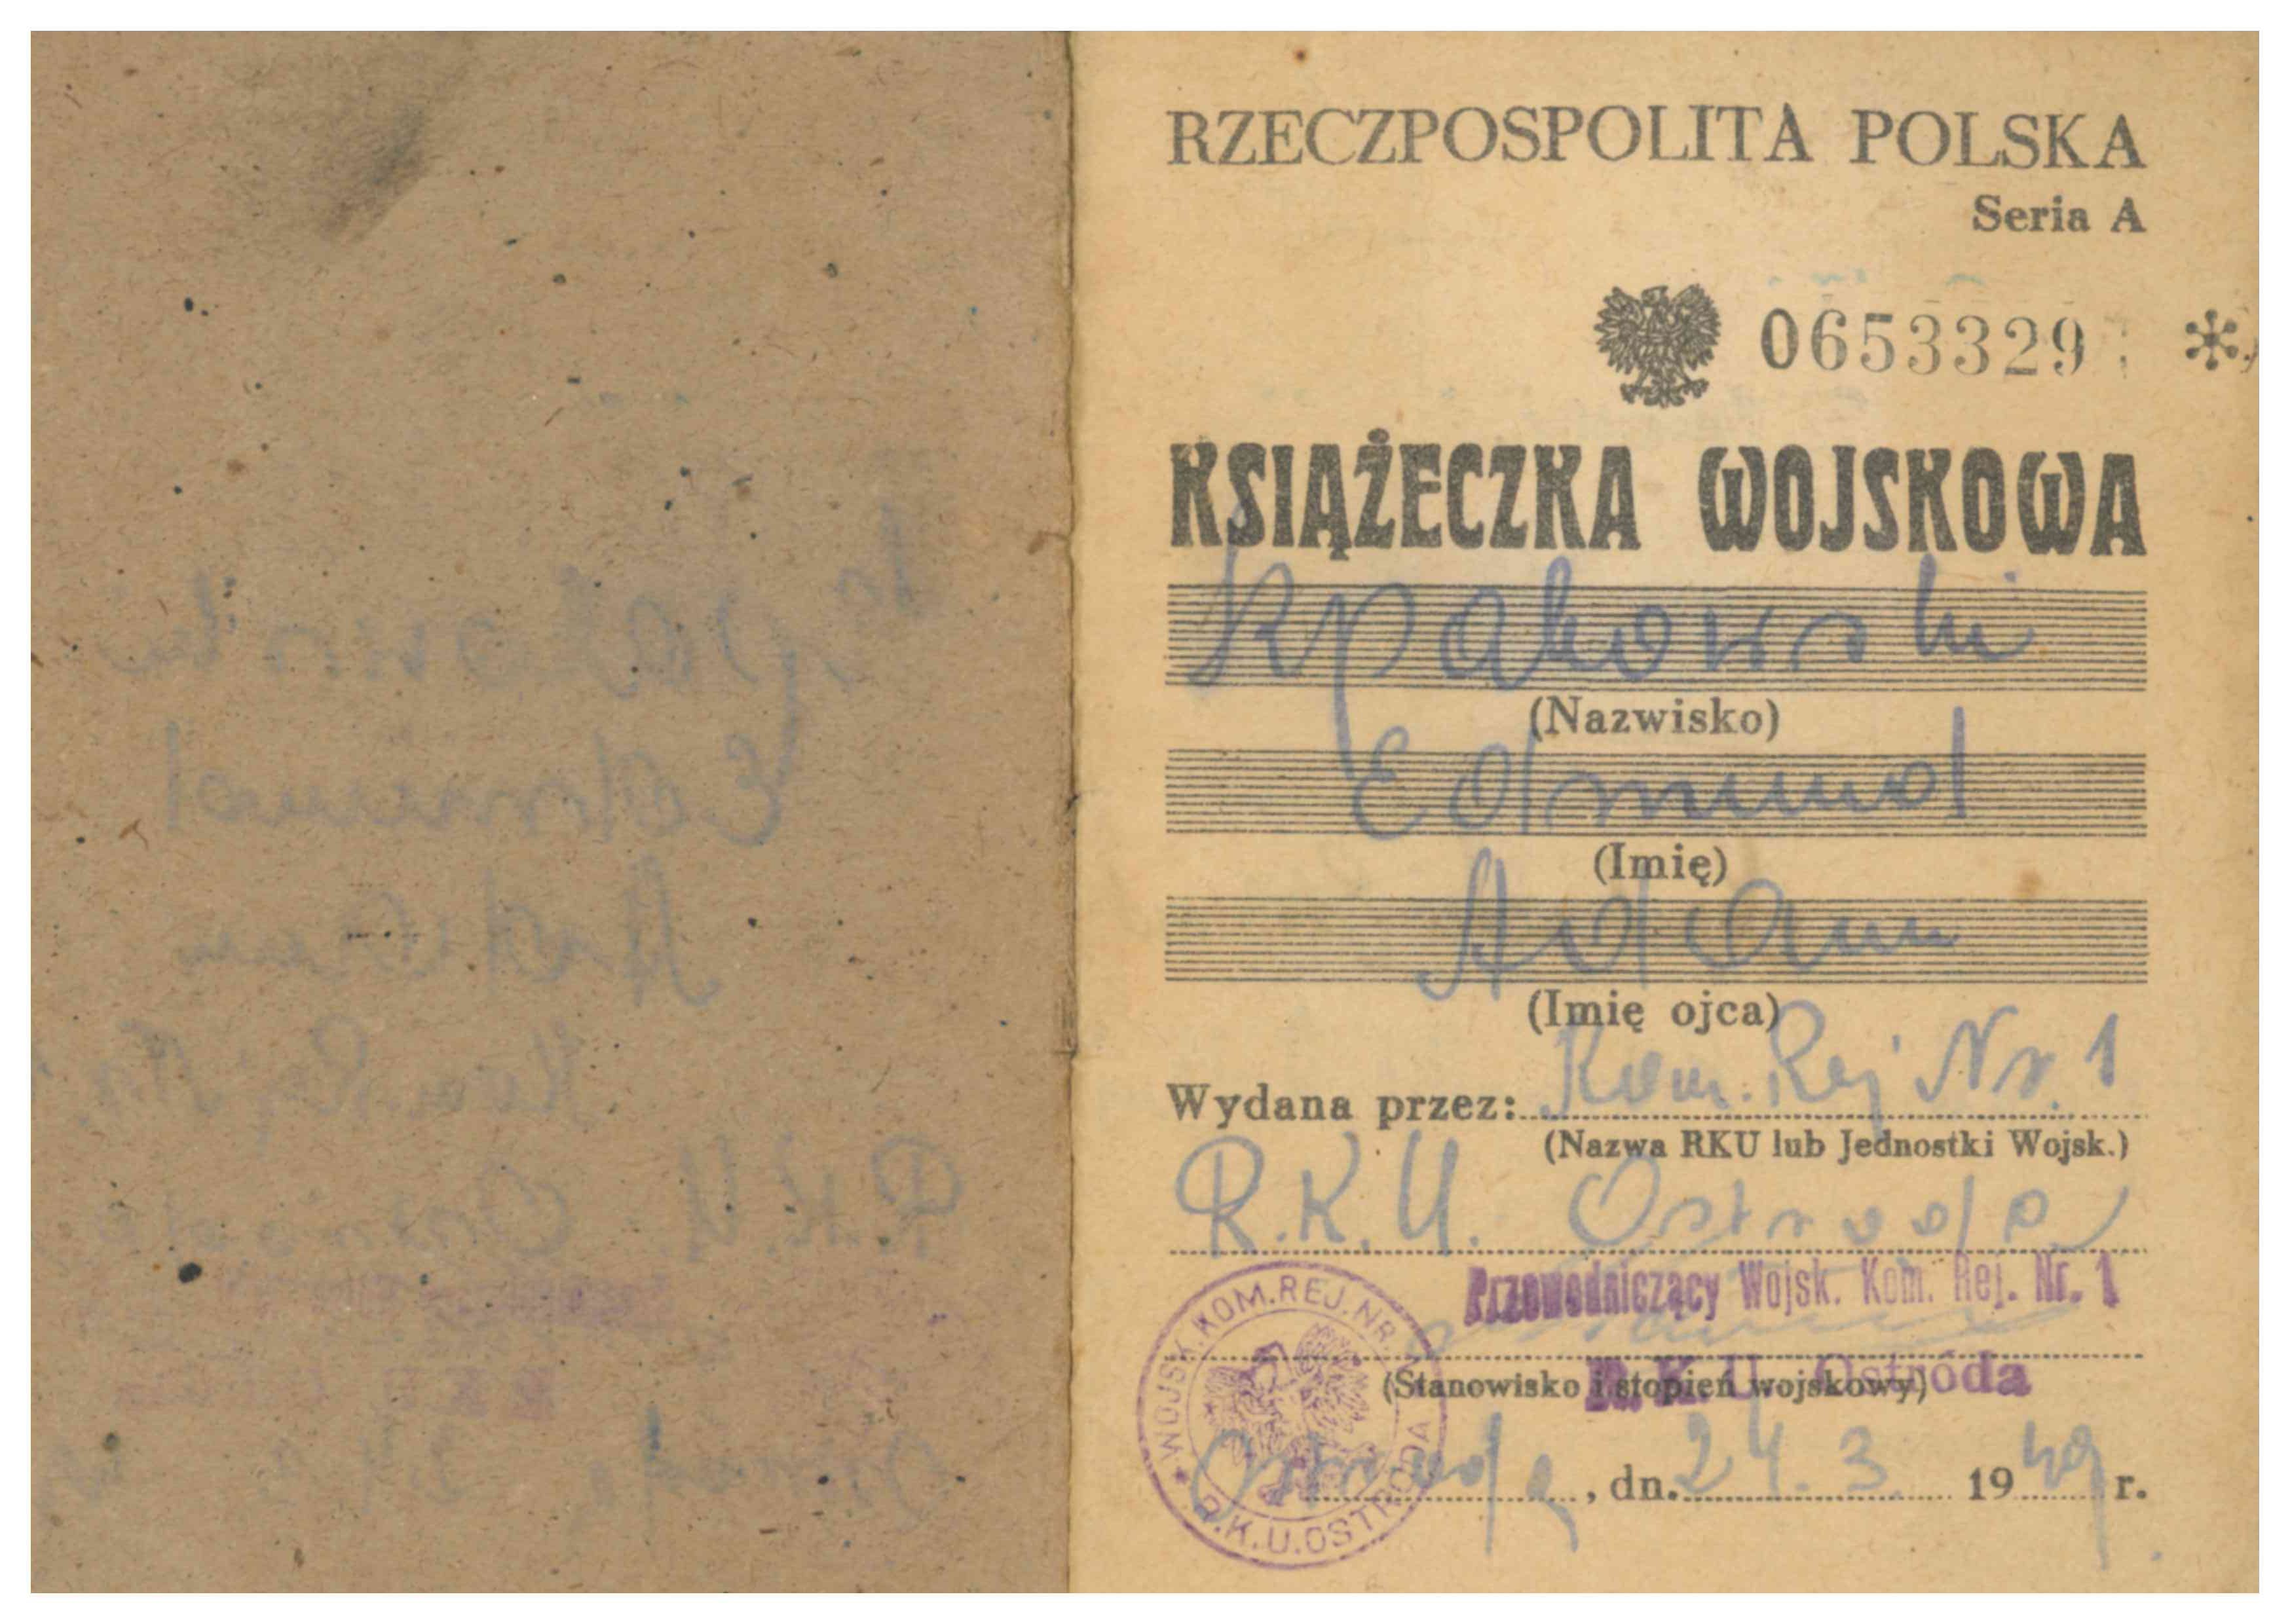 RZECZPOSPOLITA POLSKA
Seria A
0653329
KSIĄŻECZKA WOJSKOWA
Rpakowski
(Nazwisko)
Edmund
(Imię)
Adam
(Imię ojca)
Wydana przez: Kom. Rej Nr. 1
(Nazwa RKU lub Jednostki Wojsk.)
R.K.U. Ostroda
Przewodniczący Wojsk. Kom. Rej. Nr. 1
R.K.U. Ostróda
(Stanowisko i stopień wojskowy)
WOJSK. KOM. REJ. NR. 1
R.K.U. OSTRÓDA
Ostroda, dn. 24. 3. 1949 r.